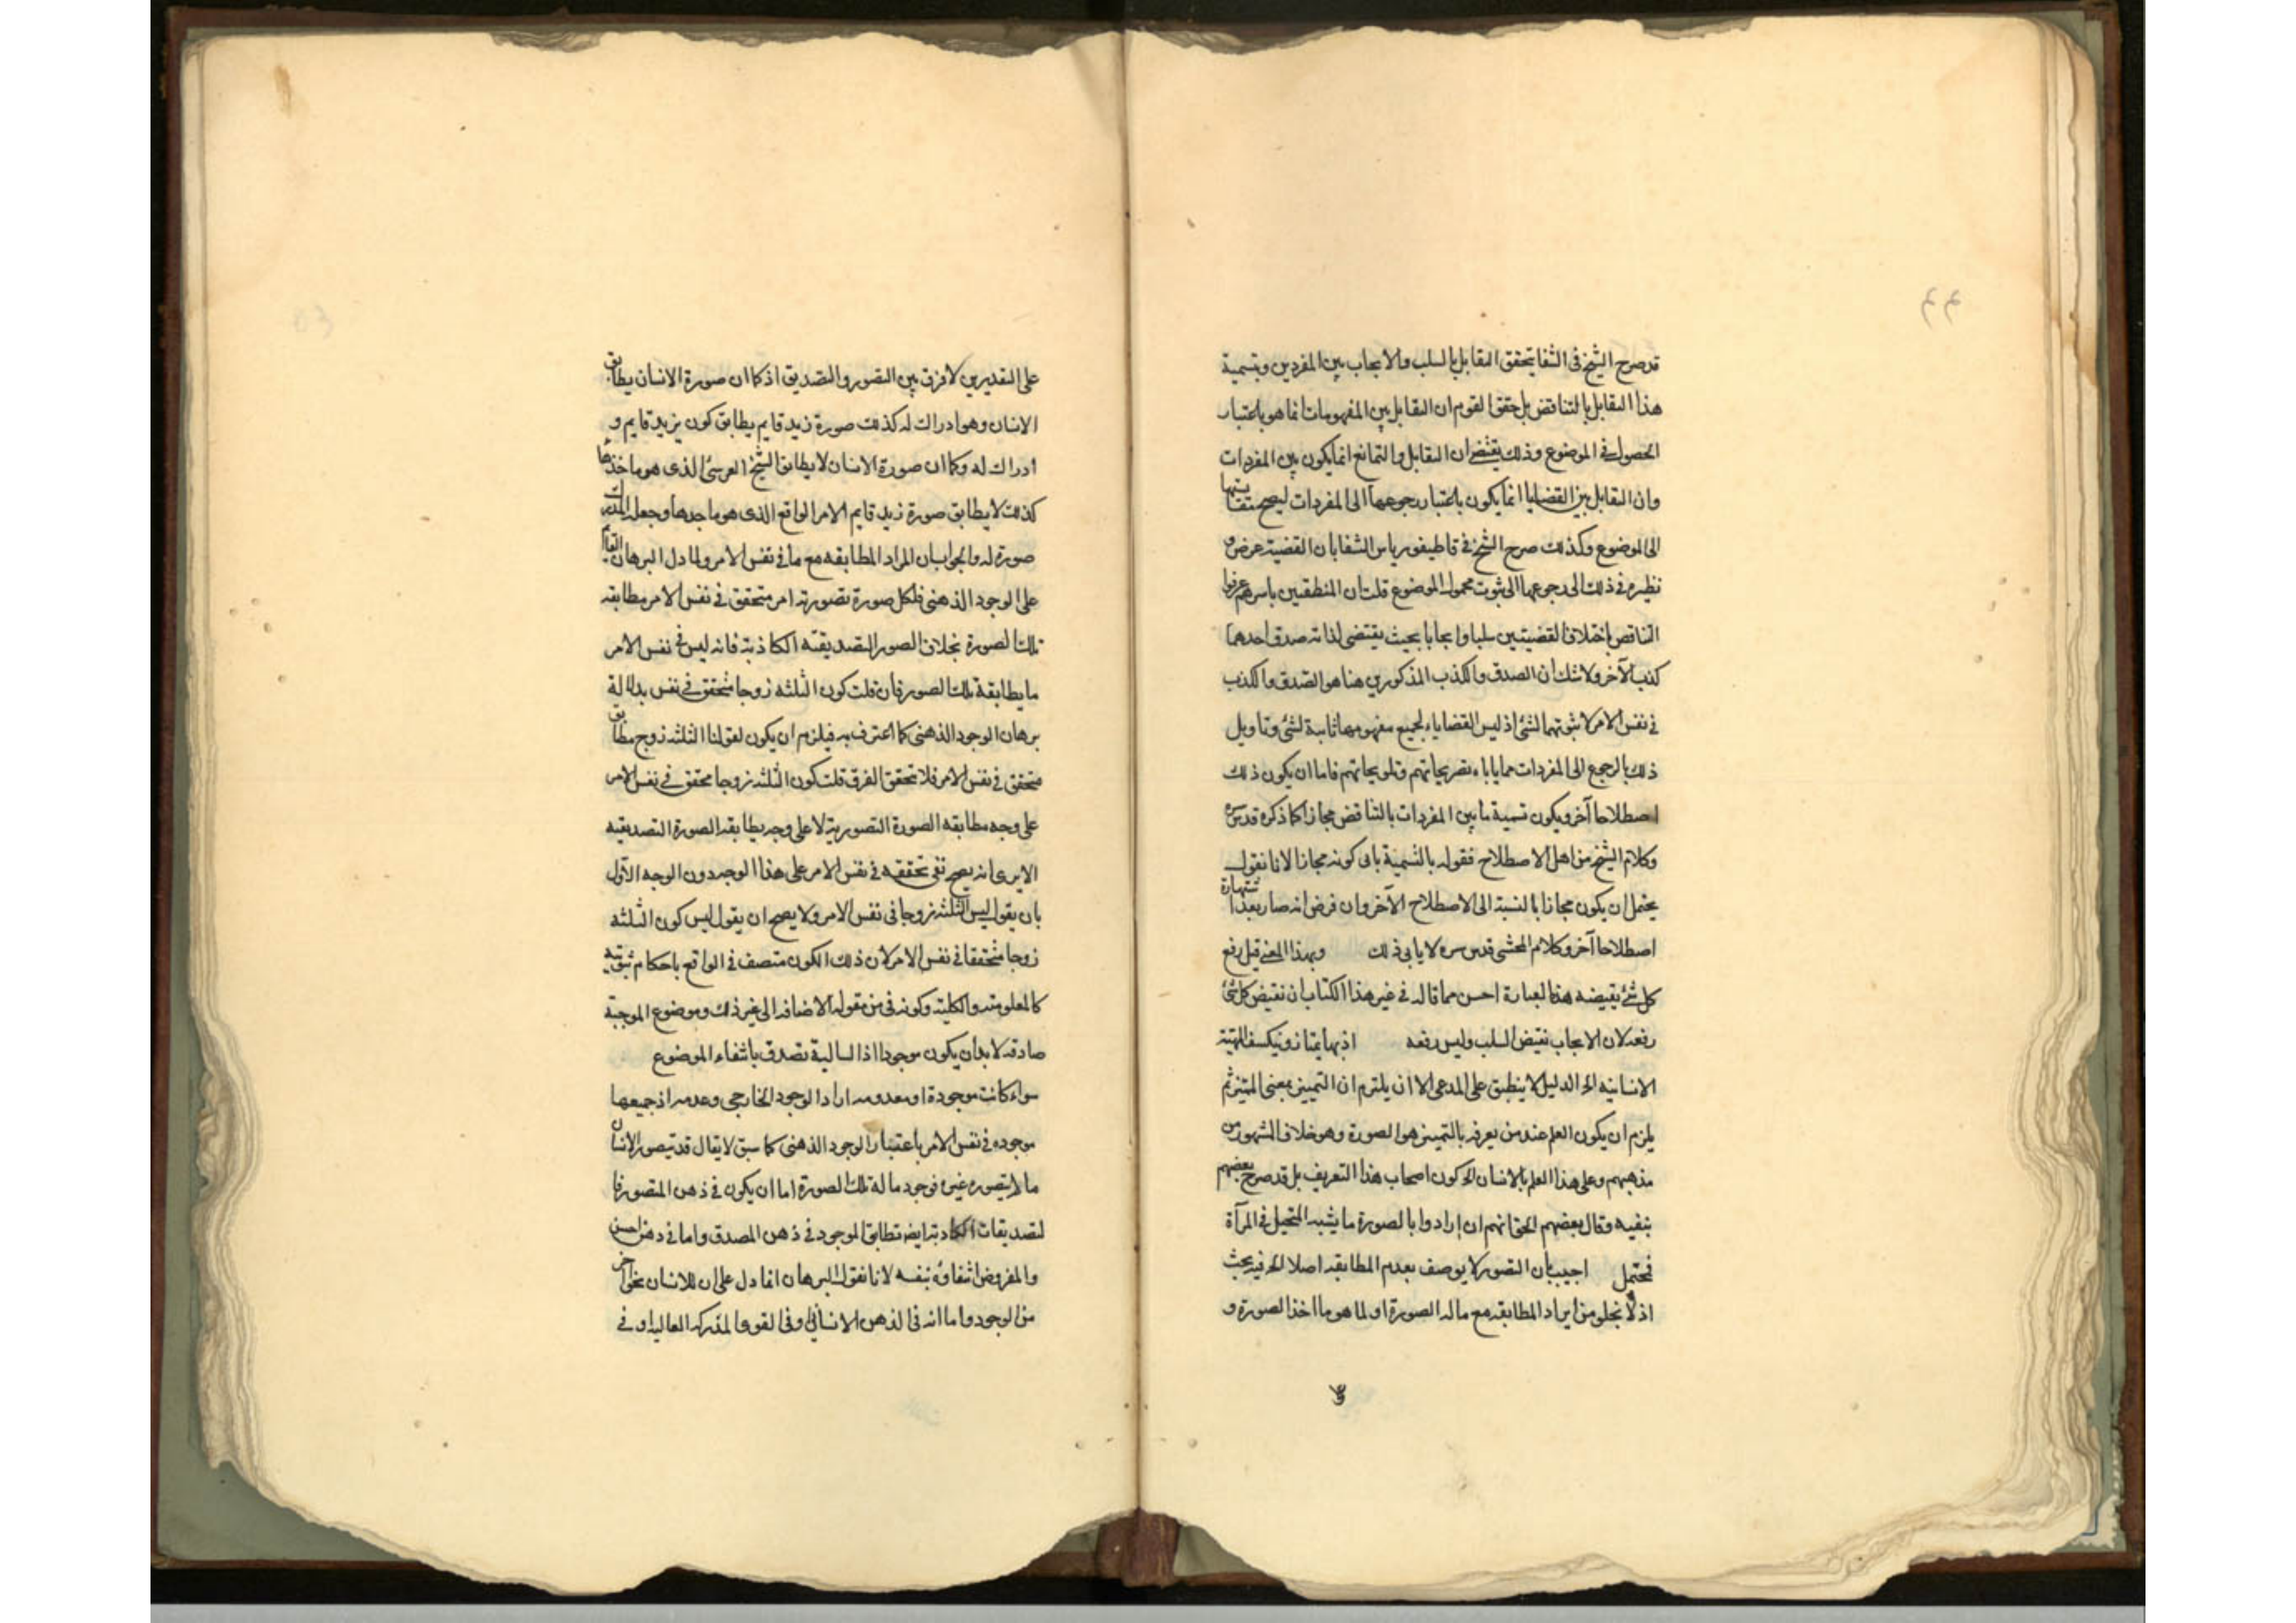 ٤٤
قد صرح الشيخ فى الشفا بتحقق التقابل بالسلب والايجاب بين المفردين وبتسمية
هذا التقابل بالتناقض بل حقق القوم ان التقابل بين المفهومات انما هو باعتبار
الحصول فى الموضوع وذلك يقتضى ان التقابل والتمانع انما يكون بين المفردات
وان التقابل بين القضايا انما يكون باعتبار رجوعها الى المفردات ليصح
الى الموضوع وكذلك صرح الشيخ فى قاطيغورياس الشفا بان القضية عرض و
نظيره فى ذلك الى رجوعهما الى ثبوت محمول الموضوع قلت ان المنطقيين باسرهم عرفوا
التناقض باختلاف القضيتين سلبا وايجابا بحيث يقتضى لذاته صدق احدهما
كذب الآخر ولا شك ان الصدق والكذب المذكورين هنا هو الصدق والكذب
فى نفس الامر لا ثبوتهما لشئ اذ ليس القضايا بجميع مفهومها ثابتة لشئ وتاويل
ذلك بالرجوع الى المفردات مما ياباه تصريحاتهم وتلويحاتهم فاما ان يكون ذلك
اصطلاحا آخر ويكون تسمية ما بين المفردات بالتناقض مجازا كما ذكره قدس سره
وكلام الشيخ من اهل الاصطلاح فقوله بالتسمية يابى كونه مجازا لانا نقول
يحتمل ان يكون مجازا بالنسبة الى الاصطلاح الآخر وان فرض انه صار بعد اشتهاره
اصطلاحا آخر وكلام المحشى قدس سره لا يابى ذلك وبهذا المعنى قيل رفع
كل شئ نقيضه هذه العبارة احسن مما قاله فى غير هذا الكتاب ان نقيض كل شئ
رفعه لان الايجاب نقيض السلب وليس رفعه اذ بها يمتاز وينكشف الماهية
الانسانية الخ الدليل لا ينطبق على المدعى الا ان يلتزم ان التمييز بمعنى المتيز ثم
يلزم ان يكون العلم عند من يعرفه بالتمييز هو الصورة وهو خلاف المشهور من
مذهبهم وعلى هذا العلم بالانسان الخ كون اصحاب هذا التعريف بل قد صرح بعضهم
بنفيه وقال بعضهم الحق انهم ان ارادوا بالصورة ما يشبه المتخيل فى المرآة
فمحتمل اجيب بان التصور لا يوصف بعدم المطابقه اصلا الخ فيه بحث
اذ لا يخلو من ان يراد المطابقه مع ماله الصورة او لما هو ما اخذ الصورة و
على التقديرين لا فرق بين التصور والتصديق اذ كما ان صورة الانسان يطابق
الانسان وهو ادراك له كذلك صورة زيد قايم يطابق كون زيد قايم و
ادراك له وكما ان صورة الانسان لا يطابق الشبح الفرسى الذى هو ماخذها
كذلك لا يطابق صورة زيد قايم الامر الواقع الذى هو ماخذها وجعل المدرك
صورة له والجواب ان المراد المطابقه مع ما فى نفس الامر ولما دل البرهان القاطع
على الوجود الذهنى فلكل صورة تصورته امر متحقق فى نفس الامر مطابقه
تلك الصورة بخلاف الصور التصديقيه الكاذبة فانه ليس فى نفس الامر
ما يطابقه تلك الصور فان قلت كون الثلثه زوجا متحقق فى نفس بدلالة
برهان الوجود الذهنى كما اعترف به فيلزم ان يكون لقولنا الثلثه زوج مطابق
متحقق فى نفس الامر فلا يتحقق الفرق قلت كون الثلثه زوجا محقق فى نفس الامر
على وجه مطابقه الصورة التصورية لا على وجه يطابقه الصورة التصديقيه
الا يرى انه يصح نفى تحققه فى نفس الامر على هذا الوجه دون الوجه الاول
بان يقول ليس الثلثه زوجا فى نفس الامر ولا يصح ان يقول ليس كون الثلثه
زوجا متحققا فى نفس الامر لان ذلك الكون متصف فى الواقع باحكام ثبوتيه
كالمعلوميه والكلية وكونه فى من مقوله الاضافه الى غير ذلك وموضوع الموجبة
صادقه لابد ان يكون موجودا اذ السالبة تصدق بانتفاء الموضوع
سواء كانت موجودة او معدومه اراد الوجود الخارجى وعدمه اذ جميعها
موجوده فى نفس الامر باعتبار الوجود الذهنى كما سبق لا يقال قد يتصور الانسان
ما لا يتصوره غيره فوجود ماله تلك الصورة اما ان يكون فى ذهن المتصور فا
لتصديقات الكاذبة ايضا تطابق الموجود فى ذهن المصدق واما فى ذهن
والمفروض انتفاؤه بنفسه لانا نقول البرهان انما دل على ان للانسان نحوا آخر
من الوجود واما انه فى الذهن الانسانى او فى القوى المدركه العاليه او فى